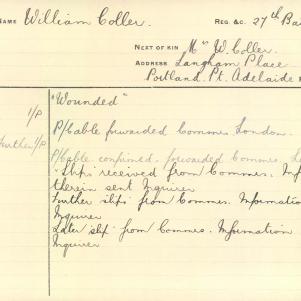 NAME William Coller. REG. &C. 27th Ba
NEXT OF KIN Mr W. Coller.
ADDRESS Langham Place
Portland Pt. Adelaide
"Wounded"
1/P P/Cable forwarded Commes London.
Further 1/P P/Cable confirmed, forwarded Commes, Lo
"Slips received from Commes. Inf
therein sent Inquirer
Further slips from Commes. Information
Inquirer
Later slip from Commes. Information
Inquirer